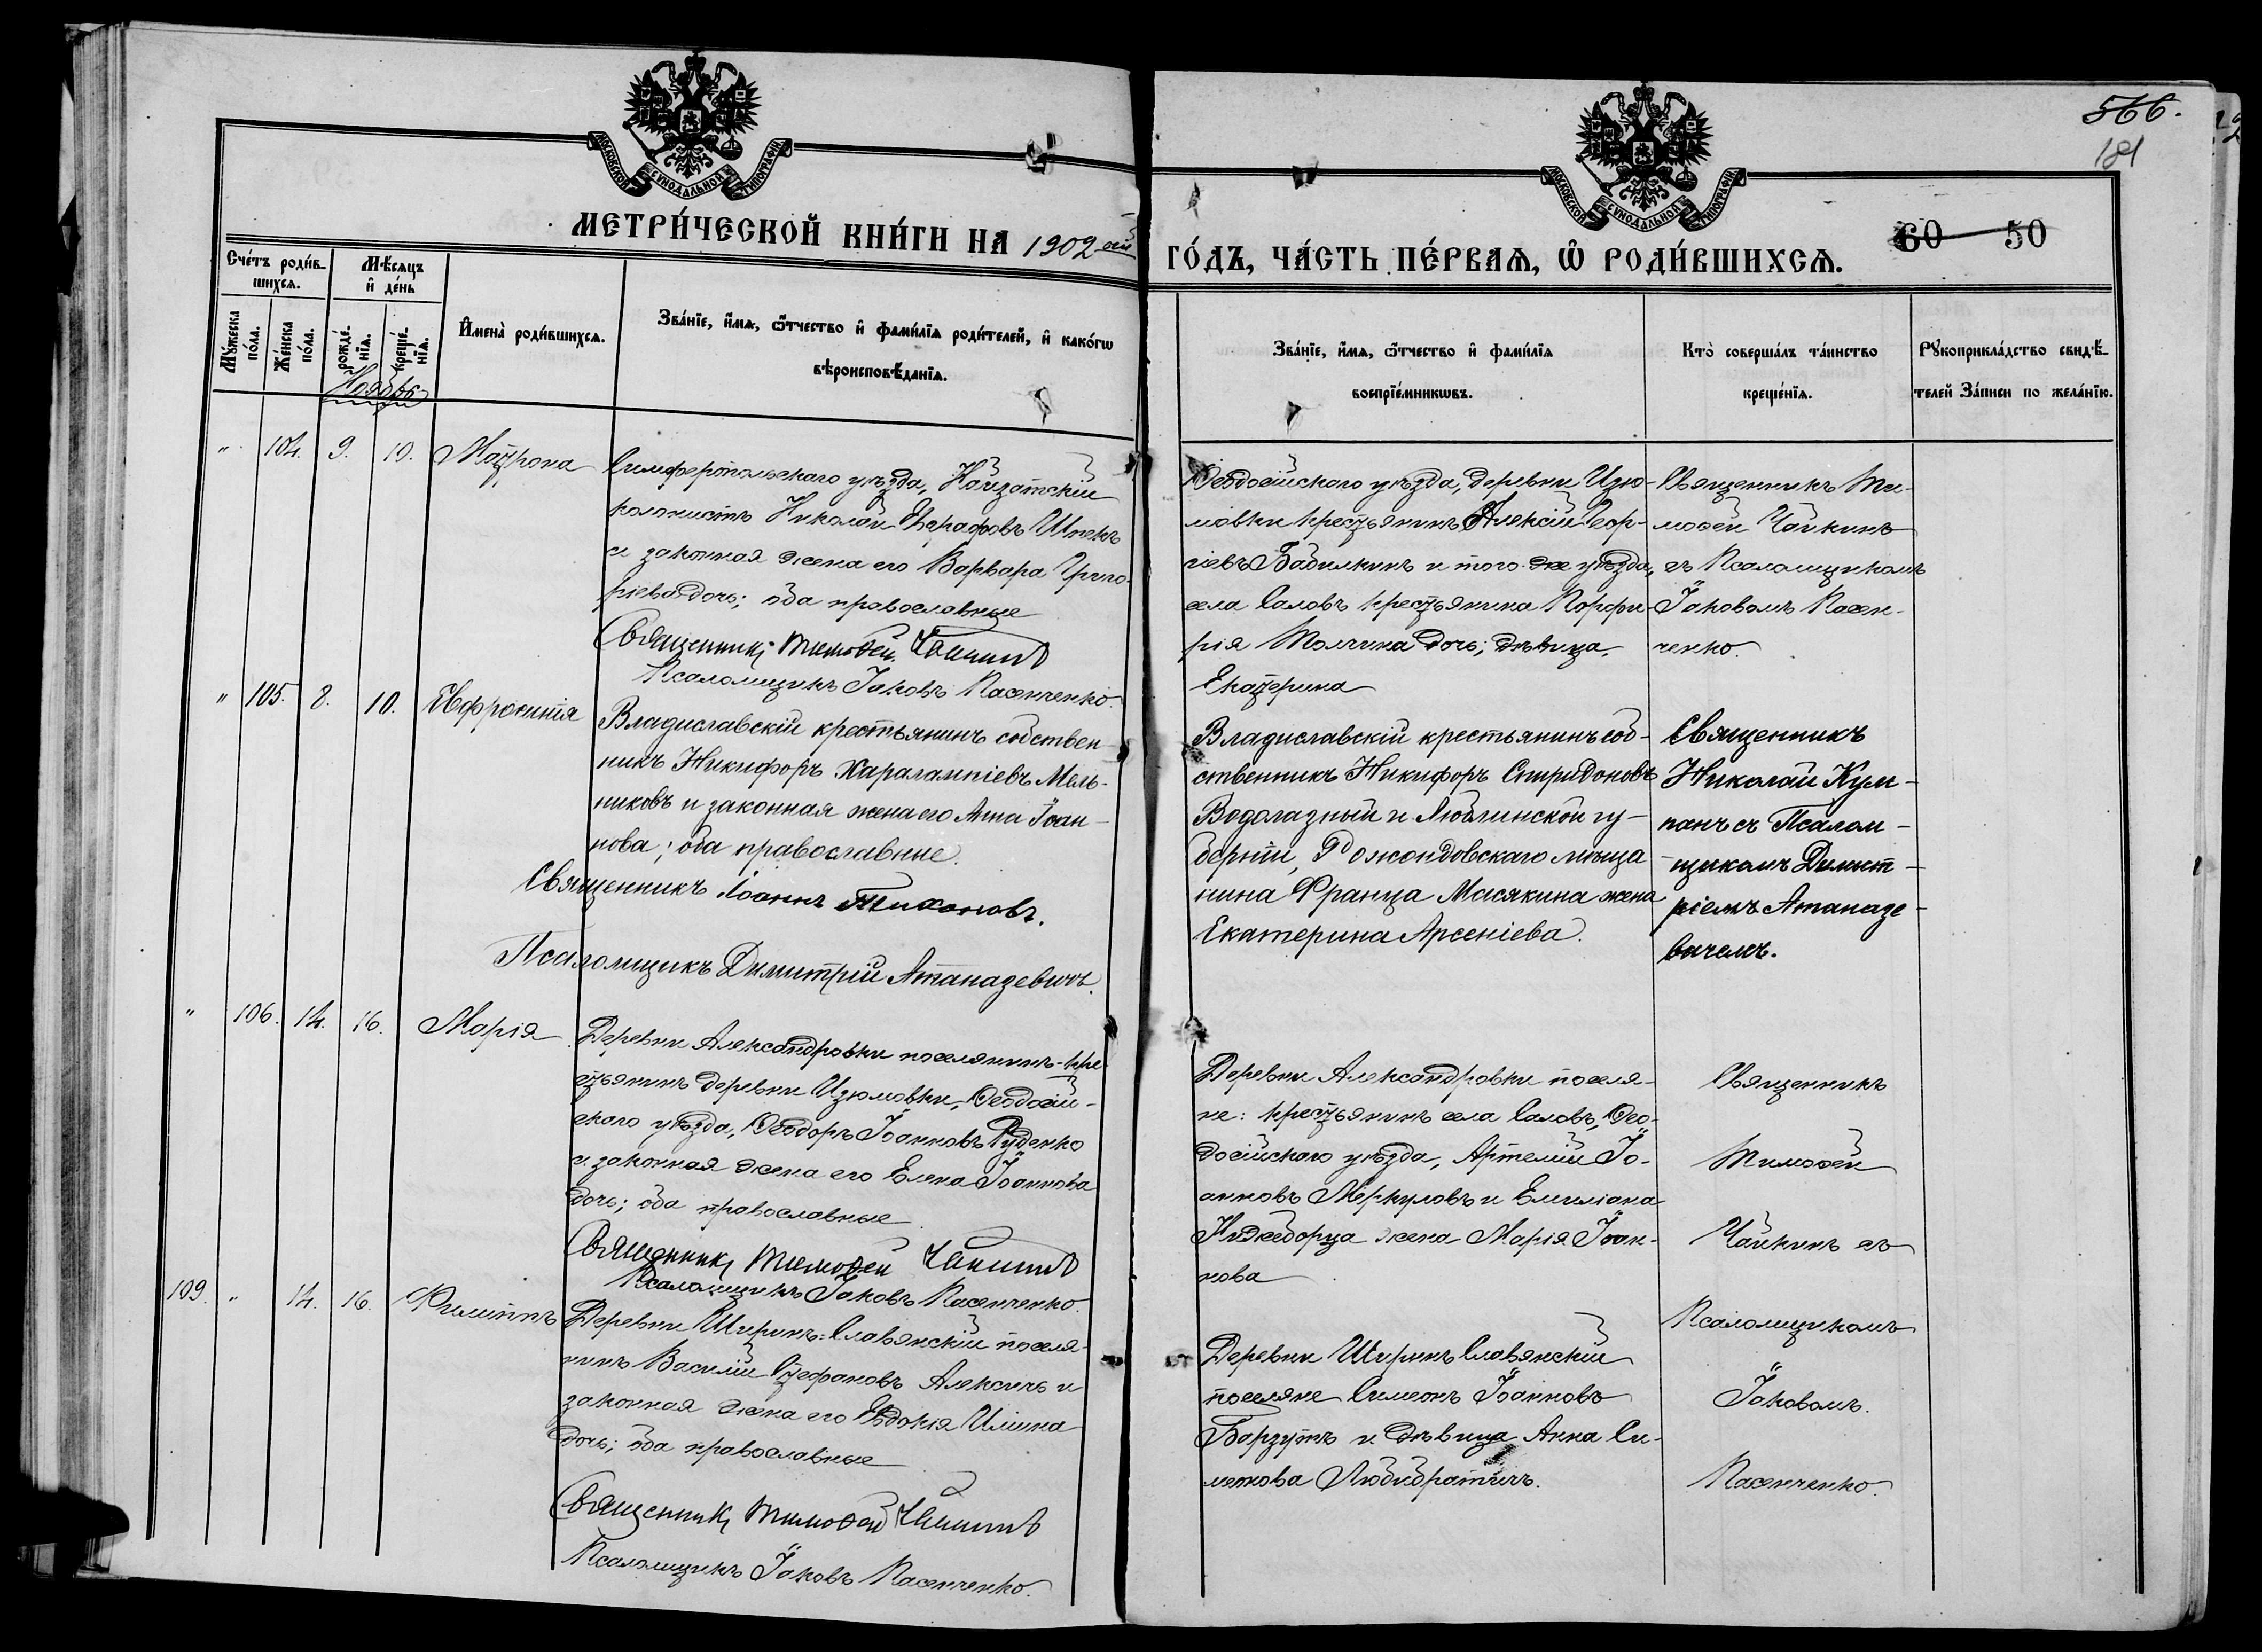 566.
181
МОСКОВСКОЙ СѴНОДАЛЬНОЙ ТИПОГРАФІИ
МОСКОВСКОЙ СѴНОДАЛЬНОЙ ТИПОГРАФІИ
МЕТРИ́ЧЕСКОЙ КНИ́ГИ НА 1902ой
ГО́ДЪ, ЧА́СТЬ ПЕ́РВАѦ, Ѡ РОДИ́ВШИХСѦ.
60 50
Сче́тъ роди́в-
шихсѧ.
Мꙋ́жеска по́ла.
Же́нска по́ла.
Мѣ́сѧцъ
и҆ де́нь
рожде́-
нїѧ.
креще́-
нїѧ.
Ноябрь
И҆мена̀ роди́вшихсѧ.
Зва́нїе, и҆́мѧ, ѻ҆́тчество и҆ фами́лїѧ роди́телей, и҆ како́гѡ
вѣроисповѣ́данїѧ.
Зва́нїе, и҆́мѧ, ѻ҆́тчество и҆ фами́лїѧ
воспрїе́мникѡвъ.
Кто̀ соверша́лъ та́инство
креще́нїѧ.
Рꙋкоприкла́дство свидѣ́-
телей за́писи по жела́нїю.
" 104. 9. 10. Матрона
Симферопольскаго уѣзда,
колонистъ Николай
и законная жена его Варвара Григо-
ріева дочь; оба православные
Священникъ Тимоѳей Чайкинъ
Псаломщикъ Іаковъ Пасенченко.
Ѳеодосійскаго уѣзда, деревни Изю-
мовки крестьянинъ Алексій Геор-
гіевъ Бабилкинъ и того же уѣзда,
села Саловъ крестьянина Порфи-
рія Толчина дочь; дѣвица,
Екатерина
Священникъ Ти-
моѳей Чайкинъ
съ Псаломщикомъ
Іаковомъ Пасен-
ченко.
" 105. 8. 10. Евфросинія
Владиславскій крестьянинъ собствен-
никъ Никифоръ Харалампіевъ Мель-
никовъ и законная жена его Анна Іоан-
нова; оба православные.
Священникъ Іоаннъ Тихоновъ.
Псаломщикъ Димитрій Атаназевичъ.
Владиславскій крестьянинъ соб-
ственникъ Никифоръ Спиридоновъ
Водолазный и Люблинской гу-
берніи, Рожондовскаго мѣща-
нина Франца Масякина жена
Екатерина Арсеніева.
Священникъ
Николай Кум-
панъ съ Псалом-
щикомъ Димит-
ріемъ Атаназе-
вичемъ.
" 106. 14. 16. Марія
Деревни Александровки поселянинъ-кре-
стьянинъ деревни Изюмовки, Ѳеодосій-
скаго уѣзда, Ѳеодоръ Іоанновъ Руденко
и законная жена его Елена Іоаннова
дочь; оба православные
Священникъ Тимоѳей Чайкинъ
Псаломщикъ Іаковъ Пасенченко.
Деревни Александровки поселя-
не: крестьянинъ села Саловъ, Ѳео-
досійскаго уѣзда, Артемій Іо-
анновъ Меркуловъ и Емиліана
жена Марія Іоан-
нова
Священникъ
Тимоѳей
Чайкинъ съ
Псаломщикомъ
Іаковомъ.
Пасенченко.
109. " 14. 16. Филиппъ
Деревни Ширинъ: Славянскій поселя-
нинъ Василій Стефановъ Алексичъ и
законная жена его Евдокія Иліина
дочь; оба православные
Священникъ Тимоѳей Чайкинъ
Псаломщикъ Іаковъ Пасенченко.
Деревни Ширинъ Славянскій
поселяне Симеонъ Іоанновъ
Борзутъ и дѣвица Анна Си-
меонова Любибратичъ.